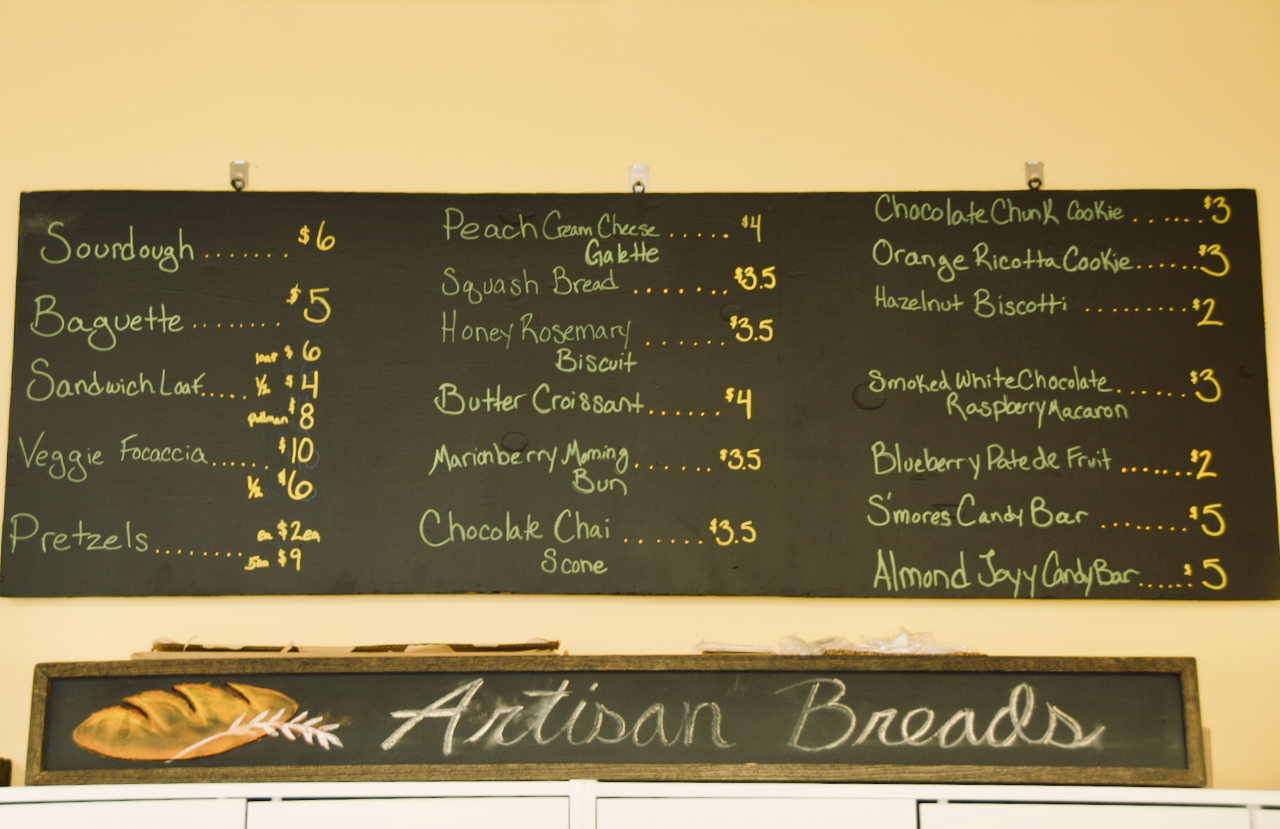 Sourdough ....... $6
Baguette ........ $5
loaf $6
Sandwich Loaf..... ½ $4
pullman $8
Veggie Focaccia...... $10
½ $6
Pretzels ........ ea $2ea
5ea $9
Peach Cream Cheese ...... $4
Galette
Squash Bread ....... $3.5
Honey Rosemary ...... $3.5
Biscuit
Butter Croissant...... $4
Marionberry Morning ...... $3.5
Bun
Chocolate Chai ...... $3.5
Scone
Chocolate Chunk Cookie ...... $3
Orange Ricotta Cookie...... $3
Hazelnut Biscotti ......... $2
Smoked White Chocolate ...... $3
Raspberry Macaron
Blueberry Pate de Fruit ...... $2
S'mores Candy Bar ....... $5
Almond Joyy Candy Bar..... $5
Artisan Breads